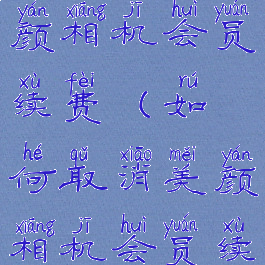 yán xiāng jī huì yuán
颜相机会员
xù fèi rú
续费（如
hé qǔ xiāo měi yán
何取消美颜
xiāng jī huì yuán xù
相机会员续